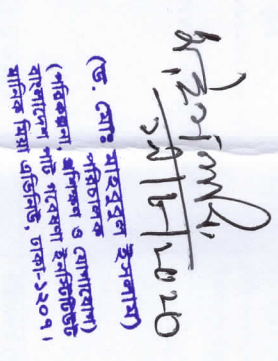 ১৯।৮।২০২০
(ড. মোঃ মাহবুবুল ইসলাম)
পরিচালক
(পরিকল্পনা, প্রশিক্ষণ ও যোগাযোগ)
বাংলাদেশ পাট গবেষণা ইনস্টিটিউট
মানিক মিয়া এভিনিউ, ঢাকা-১২০৭।